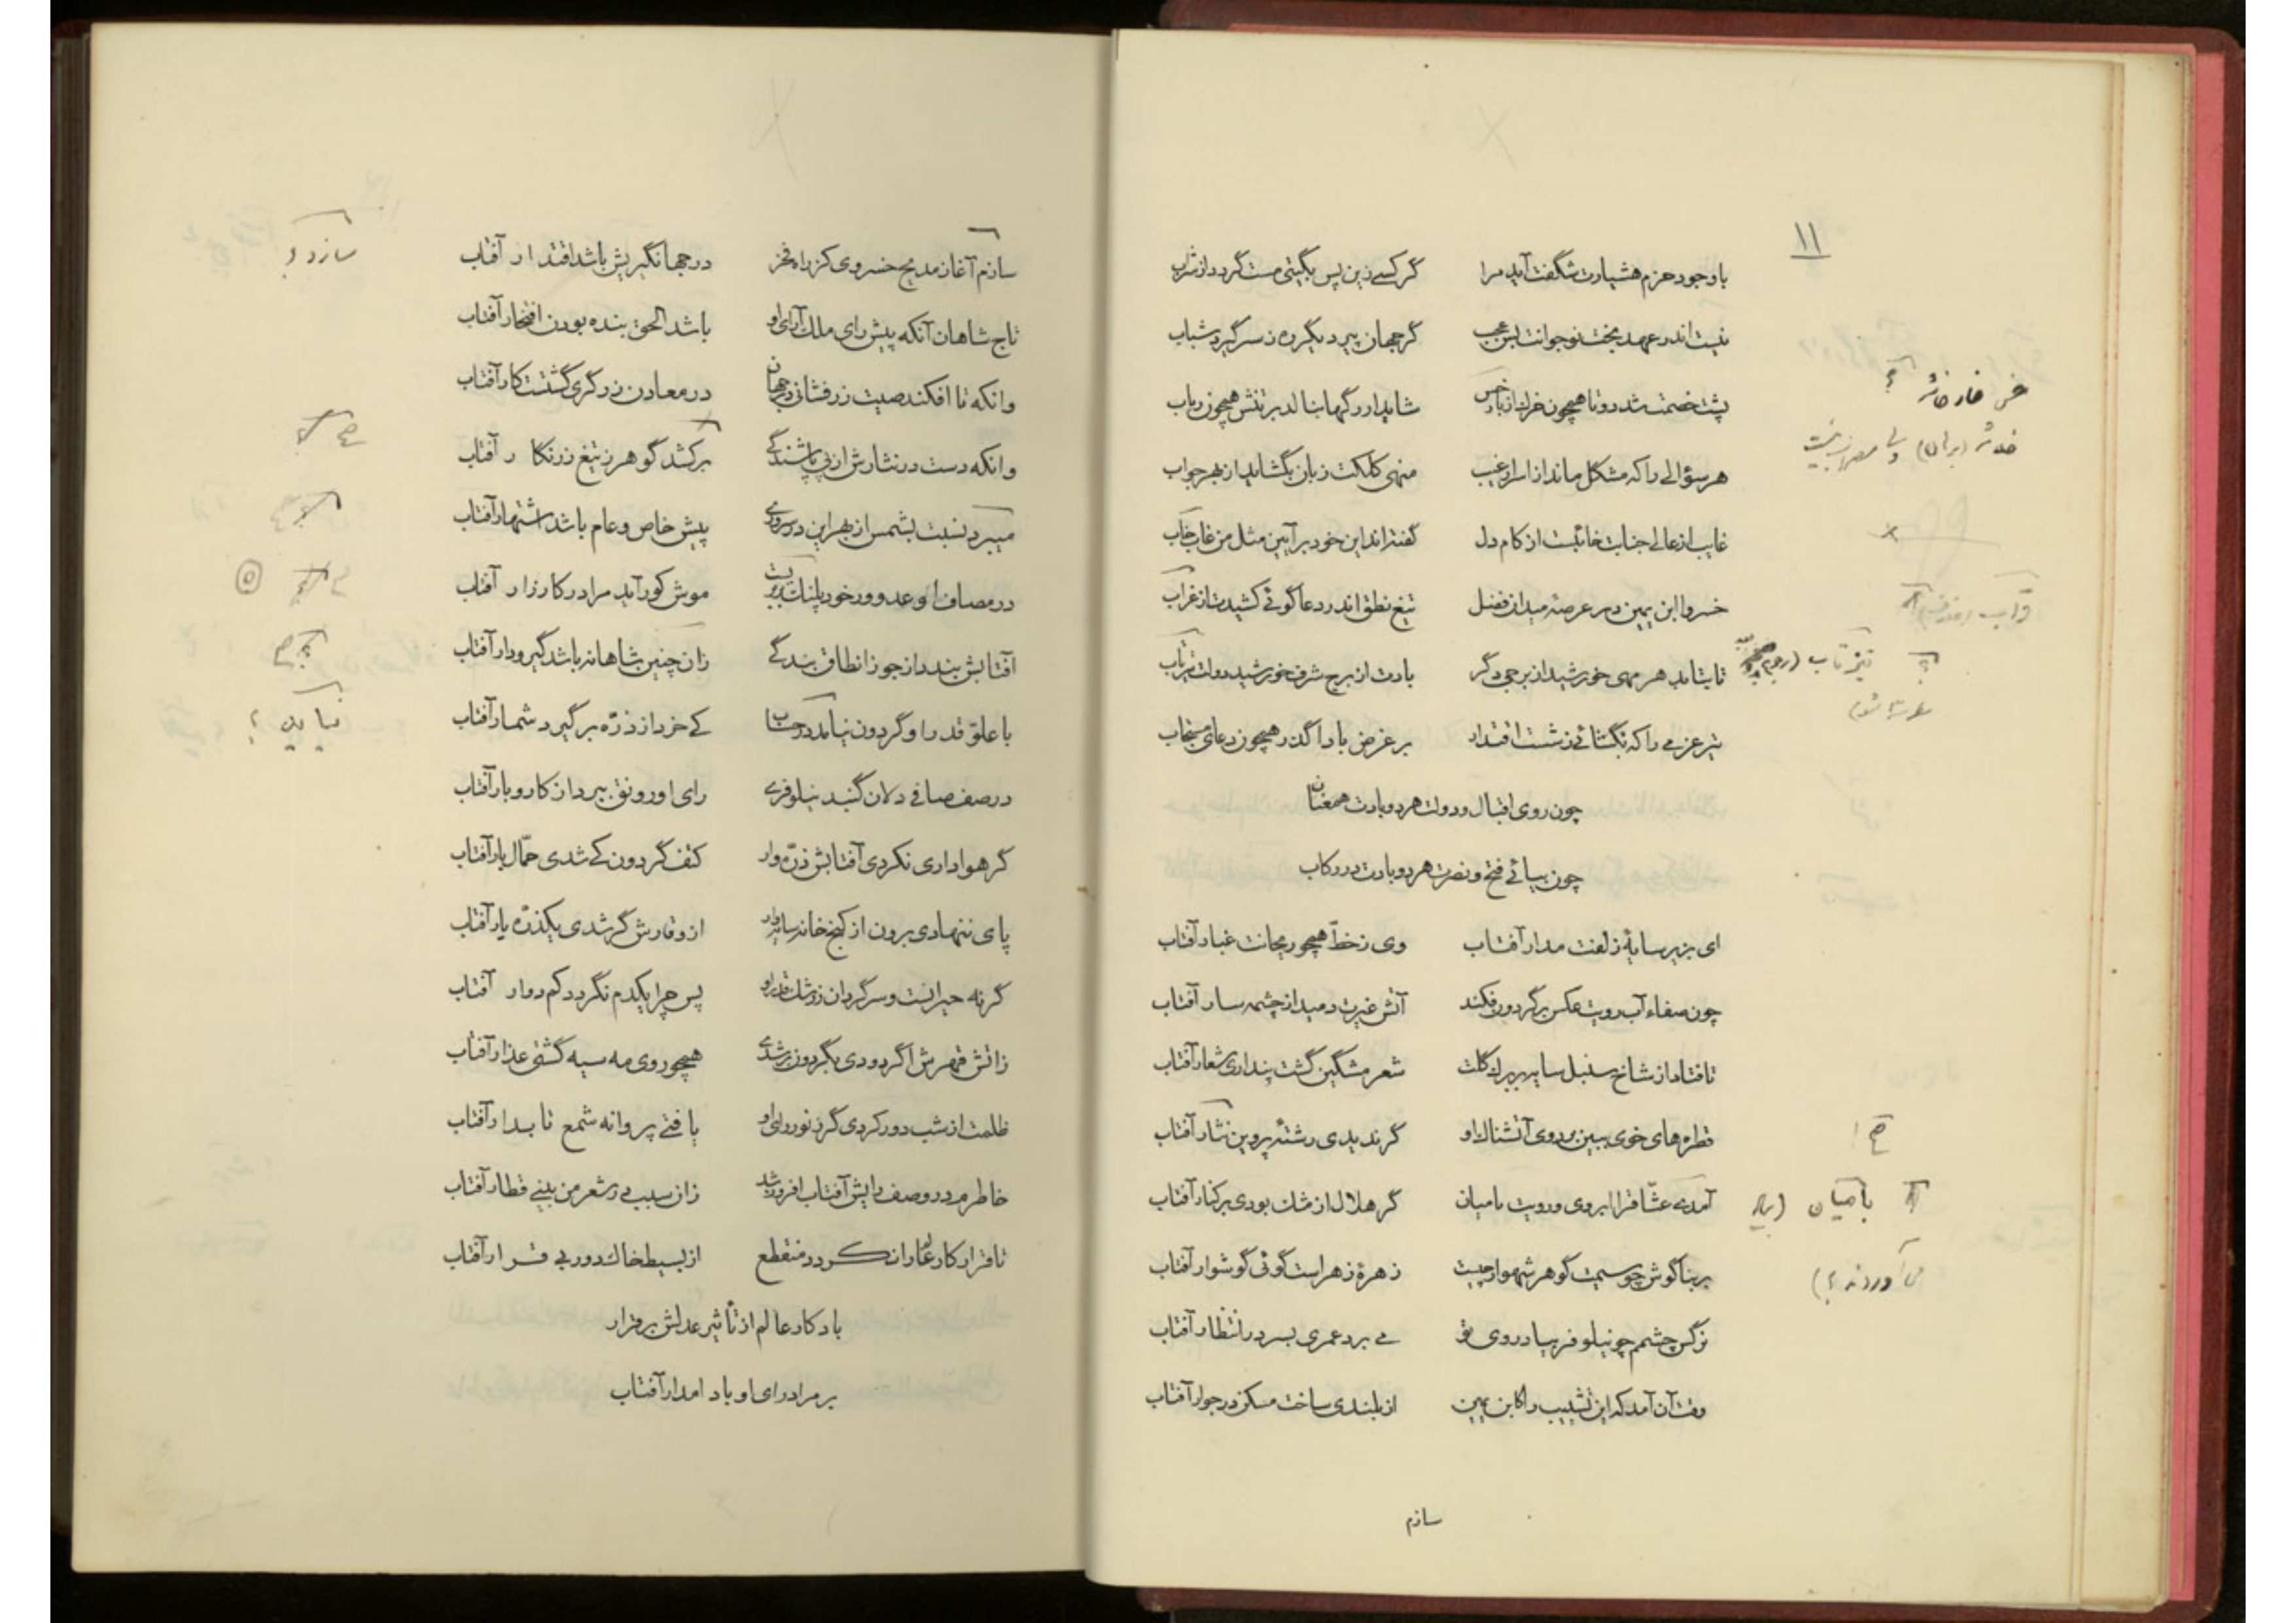 ۱۱
با وجود حزم هشیارت شگفت آید مرا گر کسی زین پس بگیتی مست گردد از شراب
نیست اندر عهد بخت نوجوانت بس عجب گر جهان پیر دیگر ره ز سر گیرد شباب
پشت خصمت شد دوتا همچون خرک از بار شاید ار رگها بنالد بر تنش همچون رباب
هر سؤالی را که مشکل ماند از اسرار غیب منهی کلکت زبان بگشاید از بهر جواب
غایب از عالی جنابت خائبست از کام دل گفته‌اند این خود بر آیین مثل من غاب خاب
خسروا ابن یمین در عرصه میدان فضل تیغ نطق اندر دعا گوئی کشیدست از قراب
تا بتابد هر مهی خورشید از برجی دگر بادت از برج شرف خورشید دولت تیز تاب
تیر عزمی را که بگشائی ز شست اقتدار بر غرض بادا گذر همچون دعای مستجاب
چون روی اقبال و دولت هر دو بادت همعنان
چون بیائی فتح و نصرت هر دو بادت در رکاب
ای بزیر سایهٔ زلفت مدار آفتاب وی ز خطّ همچو ریحانت غبار آفتاب
چون صفاء آب رویت عکس بر گردون فکند آتش غیرت دمید از چشمه سار آفتاب
تا فتاد از شاخ سنبل سایه بر برگ گلت شعر مشگین گشت پنداری شعار آفتاب
قطره‌های خوی ببین بر روی آتشناک او گر ندیدی رشتهٔ پروین نثار آفتاب
آمدی عشّاق را ابروی و رویت بامیان گر هلال از مشک بودی بر کنار آفتاب
بر بناگوش چو سیمت گوهر شهوار چیست زهرهٔ زهراست گوئی گوشوار آفتاب
نرگس چشمم چو نیلوفر بیاد روی تو می برد عمری بسر در انتظار آفتاب
وقت آن آمد که این تشبیب را کابن یمین از بلندی ساخت مسکن در جوار آفتاب
سازم
تیز تاب
بامیان
سازم آغاز مدیح خسروی کز راه فخر در جهانگیریش باشد اقتدار آفتاب
تاج شاهان آنکه پیش رای ملک آرای او باشد الحق بنده بودن افتخار آفتاب
وانکه تا افکند صیت زرفشانی در جهان در معادن زرگری گشتت کار آفتاب
وانکه دست در نثارش از پی پاشندگی برکشد گوهر ز تیغ زرنگار آفتاب
میبرد نسبت بشمس از بهر این در سروری پیش خاص و عام باشد اشتهار آفتاب
در مصاف او عدو ور خود پلنگ موش کور آید مرا در کارزار آفتاب
آفتابش بندد از جوزا نطاق بندگی زان چنین شاهانه باشد گیر و دار آفتاب
با علوّ قدر او گردون نیامد در حساب کی خرد از ذرّه برگیرد شمار آفتاب
در صف صافی دلان گنبد نیلوفری رای او رونق ببرد از کار و بار آفتاب
گر هواداری نکردی آفتابش ذرّه وار کتف گردون کی شدی حمّال بار آفتاب
پای ننهادی برون از کنج خانه سایه وار از وقارش گر شدی یکذرّه یار آفتاب
گر نه حیرانست و سرگردان ز رشک قدر او پس چرا یکدم نگردد کم دوار آفتاب
زاتش قهرش اگر دودی بگردون برشدی همچو روی مه سیه گشتی عذار آفتاب
ظلمت از شب دور کردی گر ز نور رای او یافتی پروانه شمع تابدار آفتاب
خاطرم در وصف رایش آفتاب افروز شد زان سبب در شعر من بینی قطار آفتاب
تا قرار کار عالم را نگردد منقطع از بسیط خاک دور بی قرار آفتاب
باد کار عالم از تأثیر عدلش برقرار
بر مراد رای او بادا مدار آفتاب
نیاید ؟